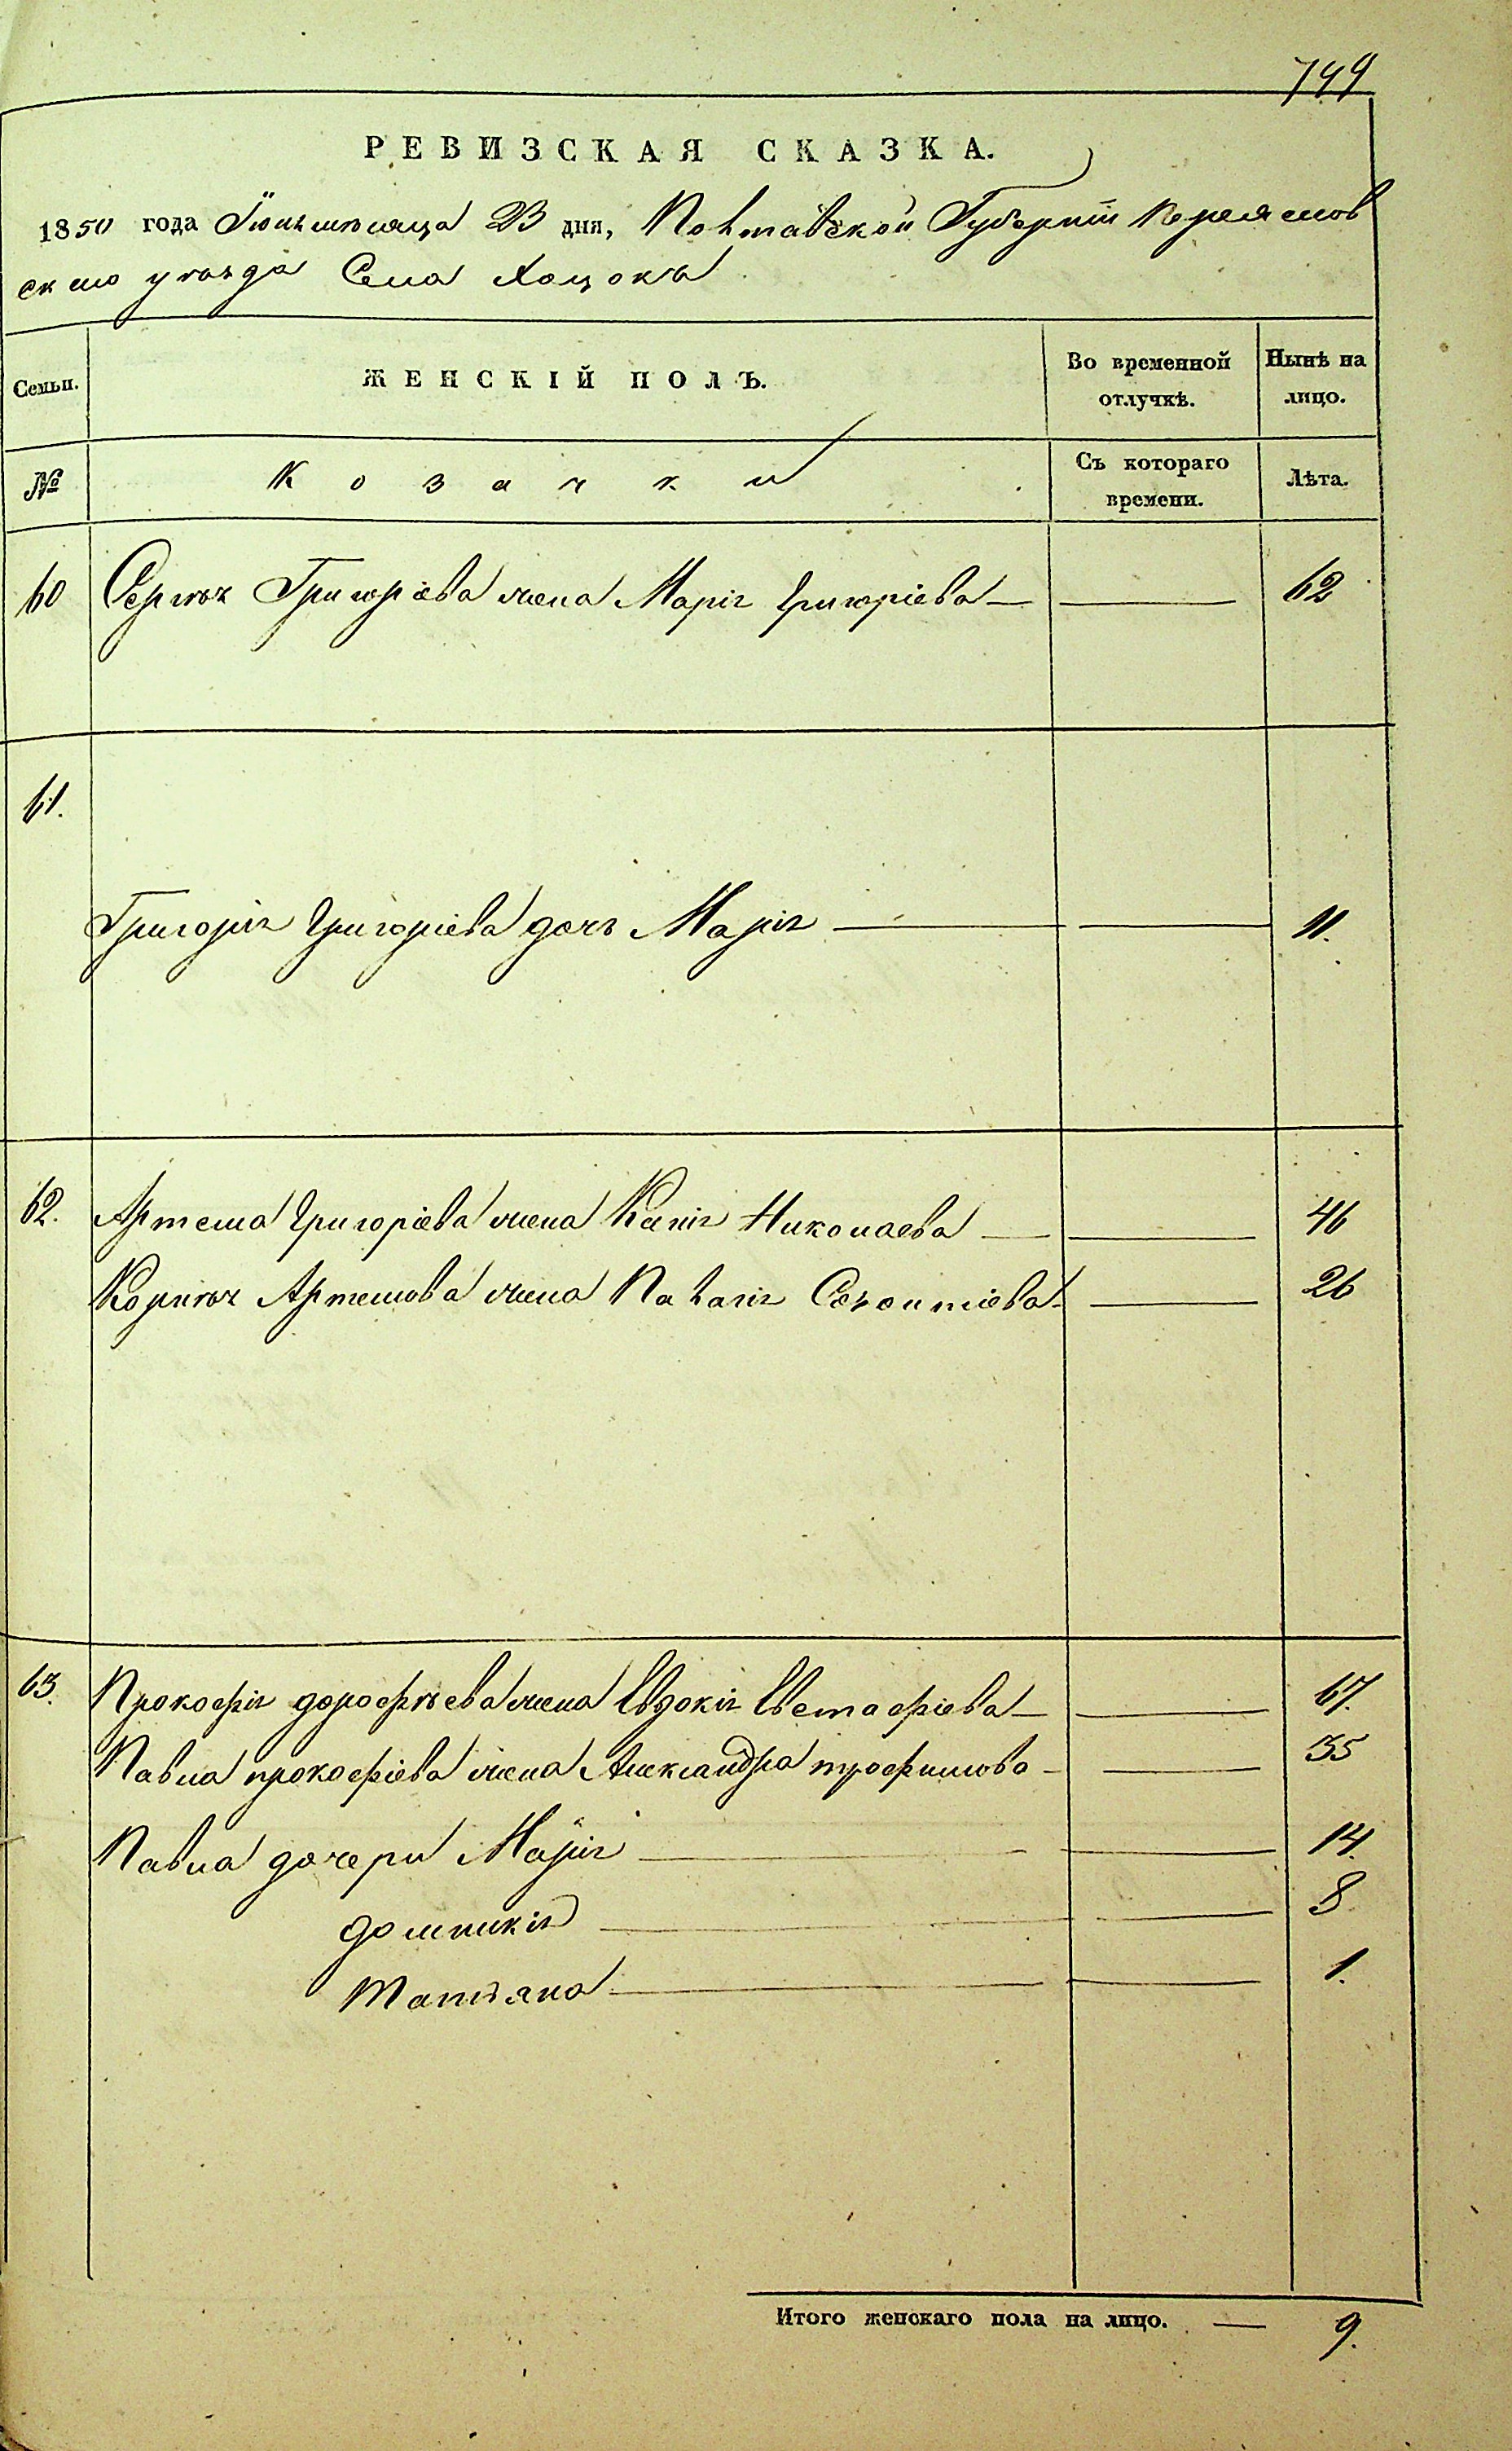 749
РЕВИЗСКАЯ СКАЗКА.
1850 года Іюнь мѣсяца 23 дня, Полтавской Губерніи Переяслов
скаго уѣзда Села Хоцокъ
Семьи. ЖЕНСКІЙ ПОЛЪ. Во временной отлучкѣ. Нынѣ на лицо.
№ Козачки Съ котораго времени. Лѣта.
60 Сергѣя Григоріева жена Марія Григоріева — — 62
61.
Григорія Григоріева дочь Марія — — 11.
62. Артема Григоріева жена Ксенія Николаева — — 46
Корнѣя Артемова жена Палагія — 26
63. Прокофія Дорофѣева жена Евдокія Евстафіева — — 67.
Павла Прокофіева жена Александра Трофимова — — 35
Павла дочери Марія — — 14.
Домникія — — 8
Татіяна — — 1.
Итого женскаго пола на лицо. — 9.